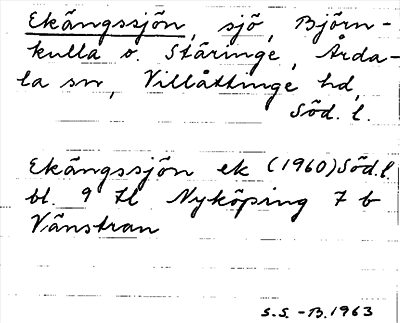 Ekängssjön, sjö, Björn-
kulla o. Stäringe, Årda-
la sn, Villåttinge hd,
Söd. l.
Ekängssjön ek (1960) Söd.l.
bl. 9 H Nyköping 7 b
Vänstran
S.S. -B. 1963